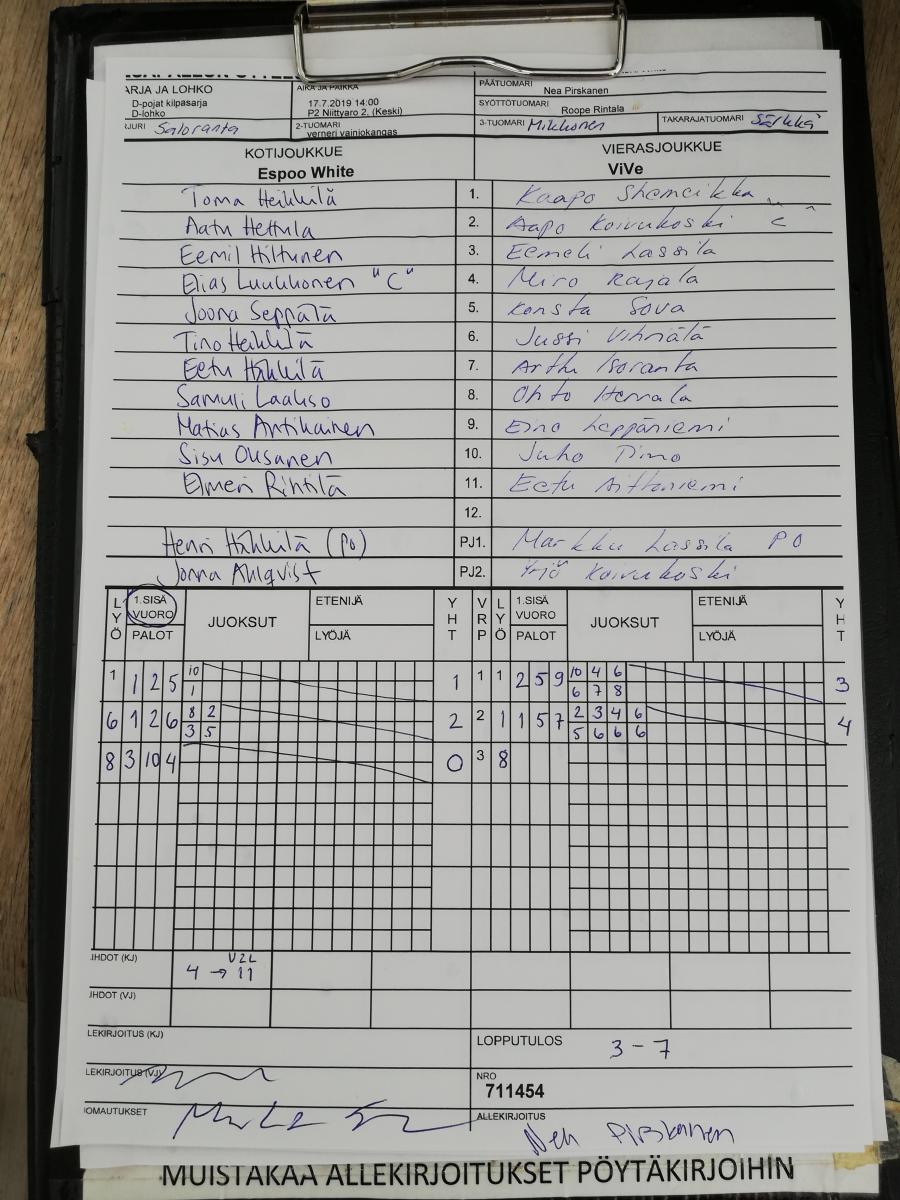 ARJA JA LOHKO
D-pojat kilpasarja
D-lohko
AIKA JA PAIKKA
17.7.2019 14:00
P2 Niittyaro 2, (Keski)
PÄÄTUOMARI
Nea Pirskanen
SYÖTTÖTUOMARI
Roope Rintala
JURI Saloranta
2-TUOMARI
verneri vainiokangas
3-TUOMARI Mikkonen
TAKARAJATUOMARI Särkkä
KOTIJOUKKUE
Espoo White
VIERASJOUKKUE
ViVe
Toma Heikkilä 1. Kaapo Shemeikka
Aatu Hettula 2. Aapo Koivukoski "C"
Eemil Hiltunen 3. Eemeli Lassila
Elias Luukkonen "C" 4. Miro Rajala
Joona Seppälä 5. Konsta Sova
Tino Heikkilä 6. Jussi Vihriälä
Eetu Häkkilä 7. Arttu Isoranta
Samuli Laakso 8. Ohto Herrala
Matias Antikainen 9. Eino Leppäniemi
Sisu Oksanen 10. Juho Timo
Elmeri Rihtilä 11. Eetu Aittoniemi
12.
Henri Häkkilä (PO) PJ1. Markku Lassila PO
Jonna Ahlqvist PJ2. Yrjö Koivukoski
LYÖ 1.SISÄ VUORO PALOT JUOKSUT ETENIJÄ LYÖJÄ YHT VRP LYÖ 1.SISÄ VUORO PALOT JUOKSUT ETENIJÄ LYÖJÄ YHT
1 1 2 5 10 1 1 1 2 5 9 10 4 6 3
1 6 7 8
6 1 2 6 8 2 2 2 1 1 5 7 2 3 4 6 4
3 5 5 6 6 6
8 3 10 4 0 3 8
IHDOT (KJ) V2L
4 → 11
IHDOT (VJ)
LEKIRJOITUS (KJ)
LOPPUTULOS 3 - 7
LEKIRJOITUS (VJ)
NRO
711454
OMAUTUKSET
ALLEKIRJOITUS
Nea Pirskanen
MUISTAKAA ALLEKIRJOITUKSET PÖYTÄKIRJOIHIN